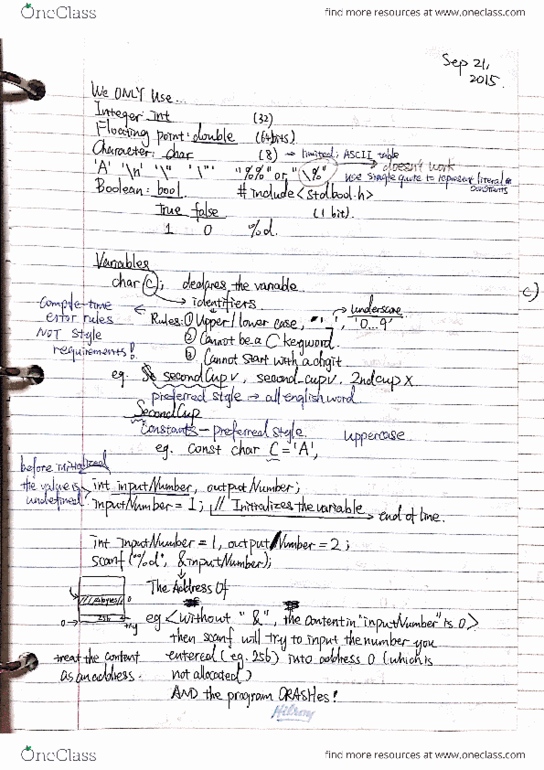 OneClass
find more resources at www.oneclass.com
Sep 21,
2015.
We ONLY Use...
Integer: int (32)
Floating point: double (64bits)
Character: char (8) → limited; ASCII table
'A' '\n' '\'' '\"' "%%" or "\%" → doesn't work
use single quote to represent literal constants
Boolean: bool #include<stdbool.h>
true false (1 bit).
1 0 %d.
Variables
char (c); declares the variable
→ identifiers
Compile-time
error rules
NOT style
requirements!
Rules: ① Upper/lower case, '_', '0...9'
→ underscore
② Cannot be a C keyword.
③ Cannot start with a digit
c)
eg. secondCup v, second_cup v, 2ndcup X
preferred style → all english word
SecondCup
Constants - preferred style uppercase
eg. const char C = 'A';
before initialized
the value is
undefined
int inputNumber, outputNumber;
inputNumber = 1; // Initializes the variable → end of line.
int inputNumber = 1, outputNumber = 2;
scanf("%d", &inputNumber);
The Address Of
0
0→ 256 try
eg <without "&", the content in "inputNumber" is 0>
then scanf will try to input the number you
entered (eg. 256) into address 0 (which is
not allocated)
AND the program CRASHes!
treat the content
as an address.
OneClass
find more resources at www.oneclass.com